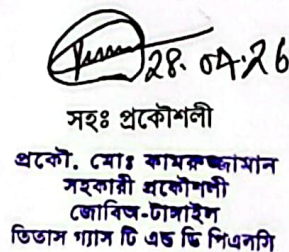 28.04.26
সহঃ প্রকৌশলী
প্রকৌ. মোঃ কামরুজ্জামান
সহকারী প্রকৌশলী
জোবিঅ-টাঙ্গাইল
তিতাস গ্যাস টি এন্ড ডি পিএলসি